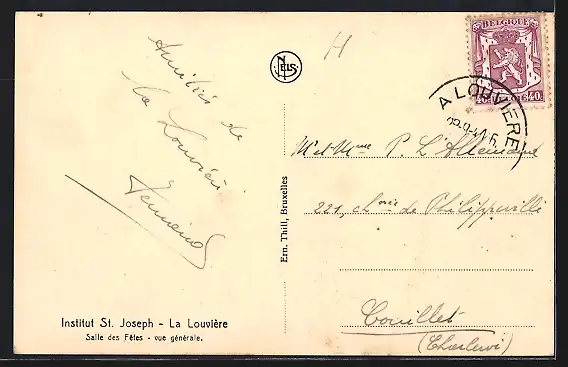 Amitiés de
La Louvière
Fernand
Institut St. Joseph - La Louvière
Salle des Fêtes - vue générale.
NELS
Ern. Thill, Bruxelles
H
BELGIQUE
40c 40c
LA LOUVIERE
M et Mme P. L'Allemand
221, Chée de Philippeville
Couillet
(Charleroi)